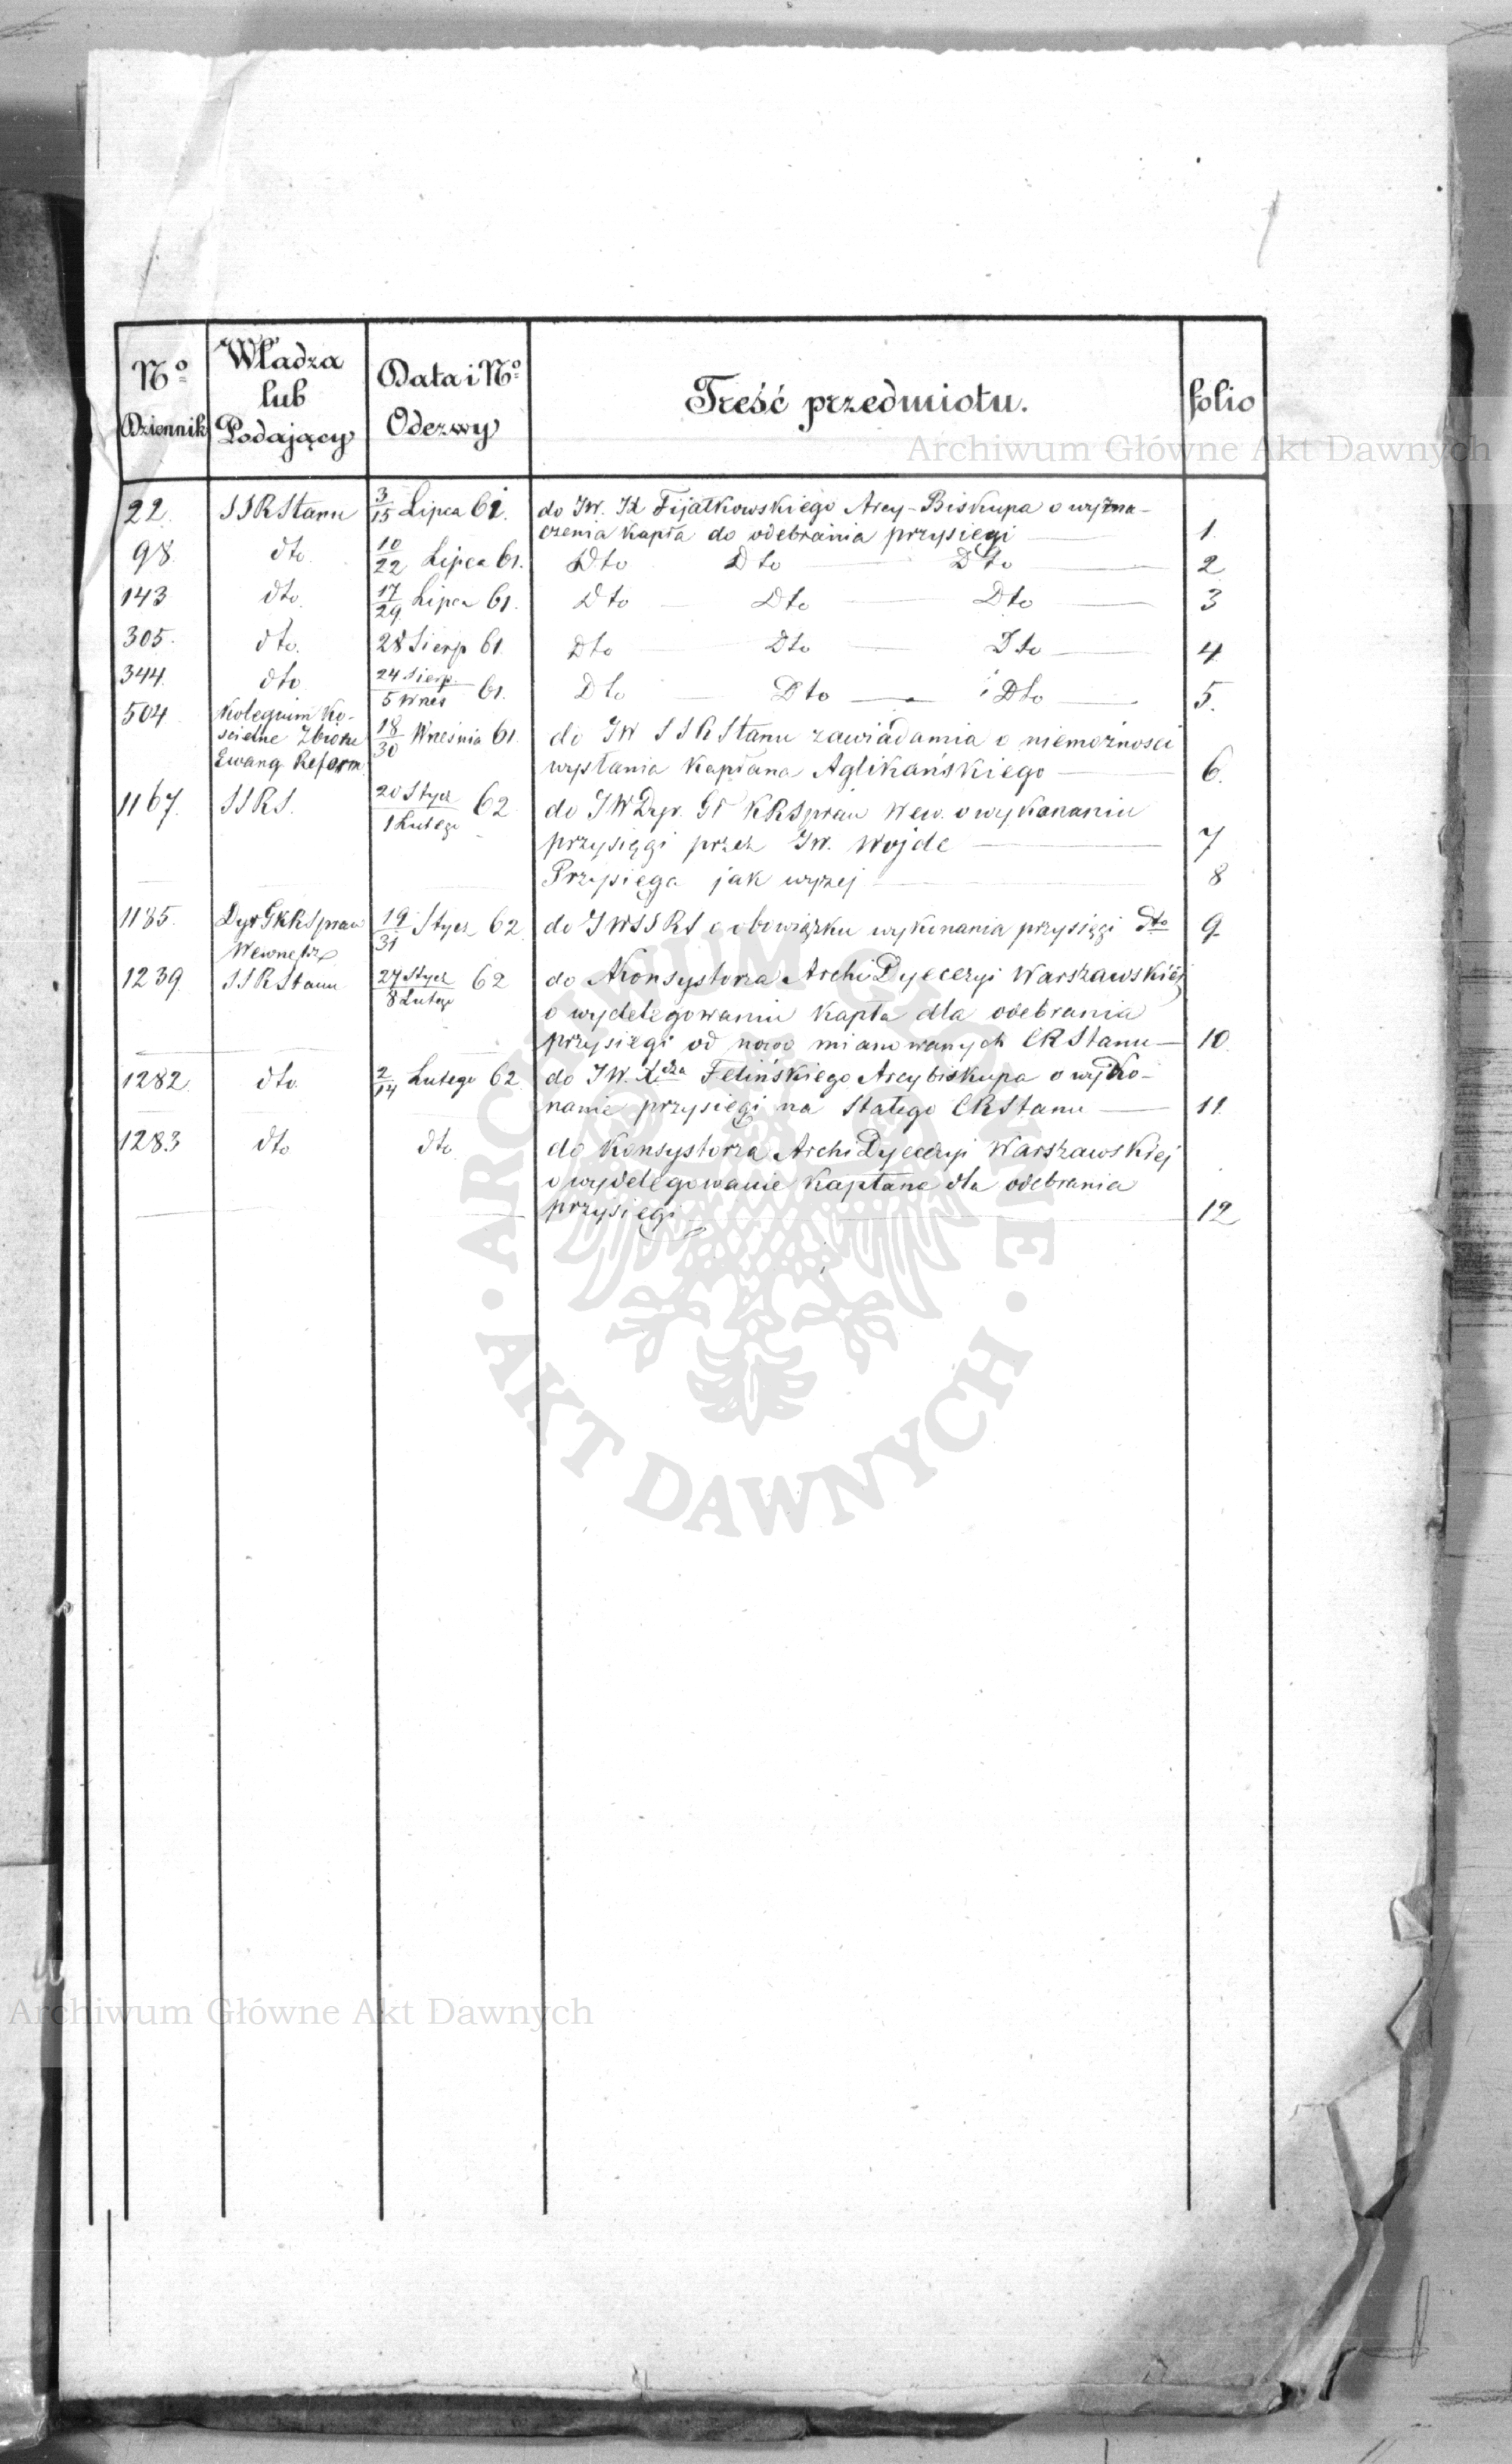 No Dziennik
Władza lub Podający
Data i No Odezwy
Treść przedmiotu.
folio
22. SSRStanu 3/15 Lipca 61. do JW. JX Fijałkowskiego Arcy-Biskupa o wyzna-
czenia Kapła do odebrania przysięgi 1.
98. dto. 10/22 Lipca 61. Dto Dto Dto 2
143 dto. 17/29 Lipca 61. Dto Dto Dto 3
305. dto. 28 Sierp 61. Dto Dto Dto 4
344. dto 24 Sierp/5 Wrześ 61. Dto Dto i Dto 5.
504 Kolegium Ko-
ścielne Zboru 18/30 Września 61 do JW SSRStanu zawiadamia o niemożnosci
Ewang. Reform. wysłania Kapłana Aglikańskiego 6.
1167. SSRS. 20 Stycz/1 Lutego 62 do JW Dyr. Gł KRSpraw Wew. o wykonaniu
przysięgi przez JW. Wojde 7
Przysięga jak wyzej 8
1185. Dyr GKRSpraw 19/31 Stycz 62 do JWSSRS o obowiązku wykonania przysięgi dto 9
Wewnętrz
1239. SSRStanu 27 Stycz/8 Lutego 62 do Konsystorza ArchiDyecezyi Warszawskiej
o wydelegowaniu Kapła dla odebrania
przysięgi od nowo mianowanych CRStanu 10.
1282. dto. 2/14 Lutego 62. do JW. Xdza Felińskiego Arcybiskupa o wyko-
nanie przysięgi na Stałego CRStanu 11.
1283 dto dto do Konsystorza ArchiDyecezyi Warszawskiej
o wydelegowanie Kapłana dla odebrania
przysięgi 12
Archiwum Główne Akt Dawnych
ARCHIWUM GŁÓWNE · AKT DAWNYCH ·
Archiwum Główne Akt Dawnych